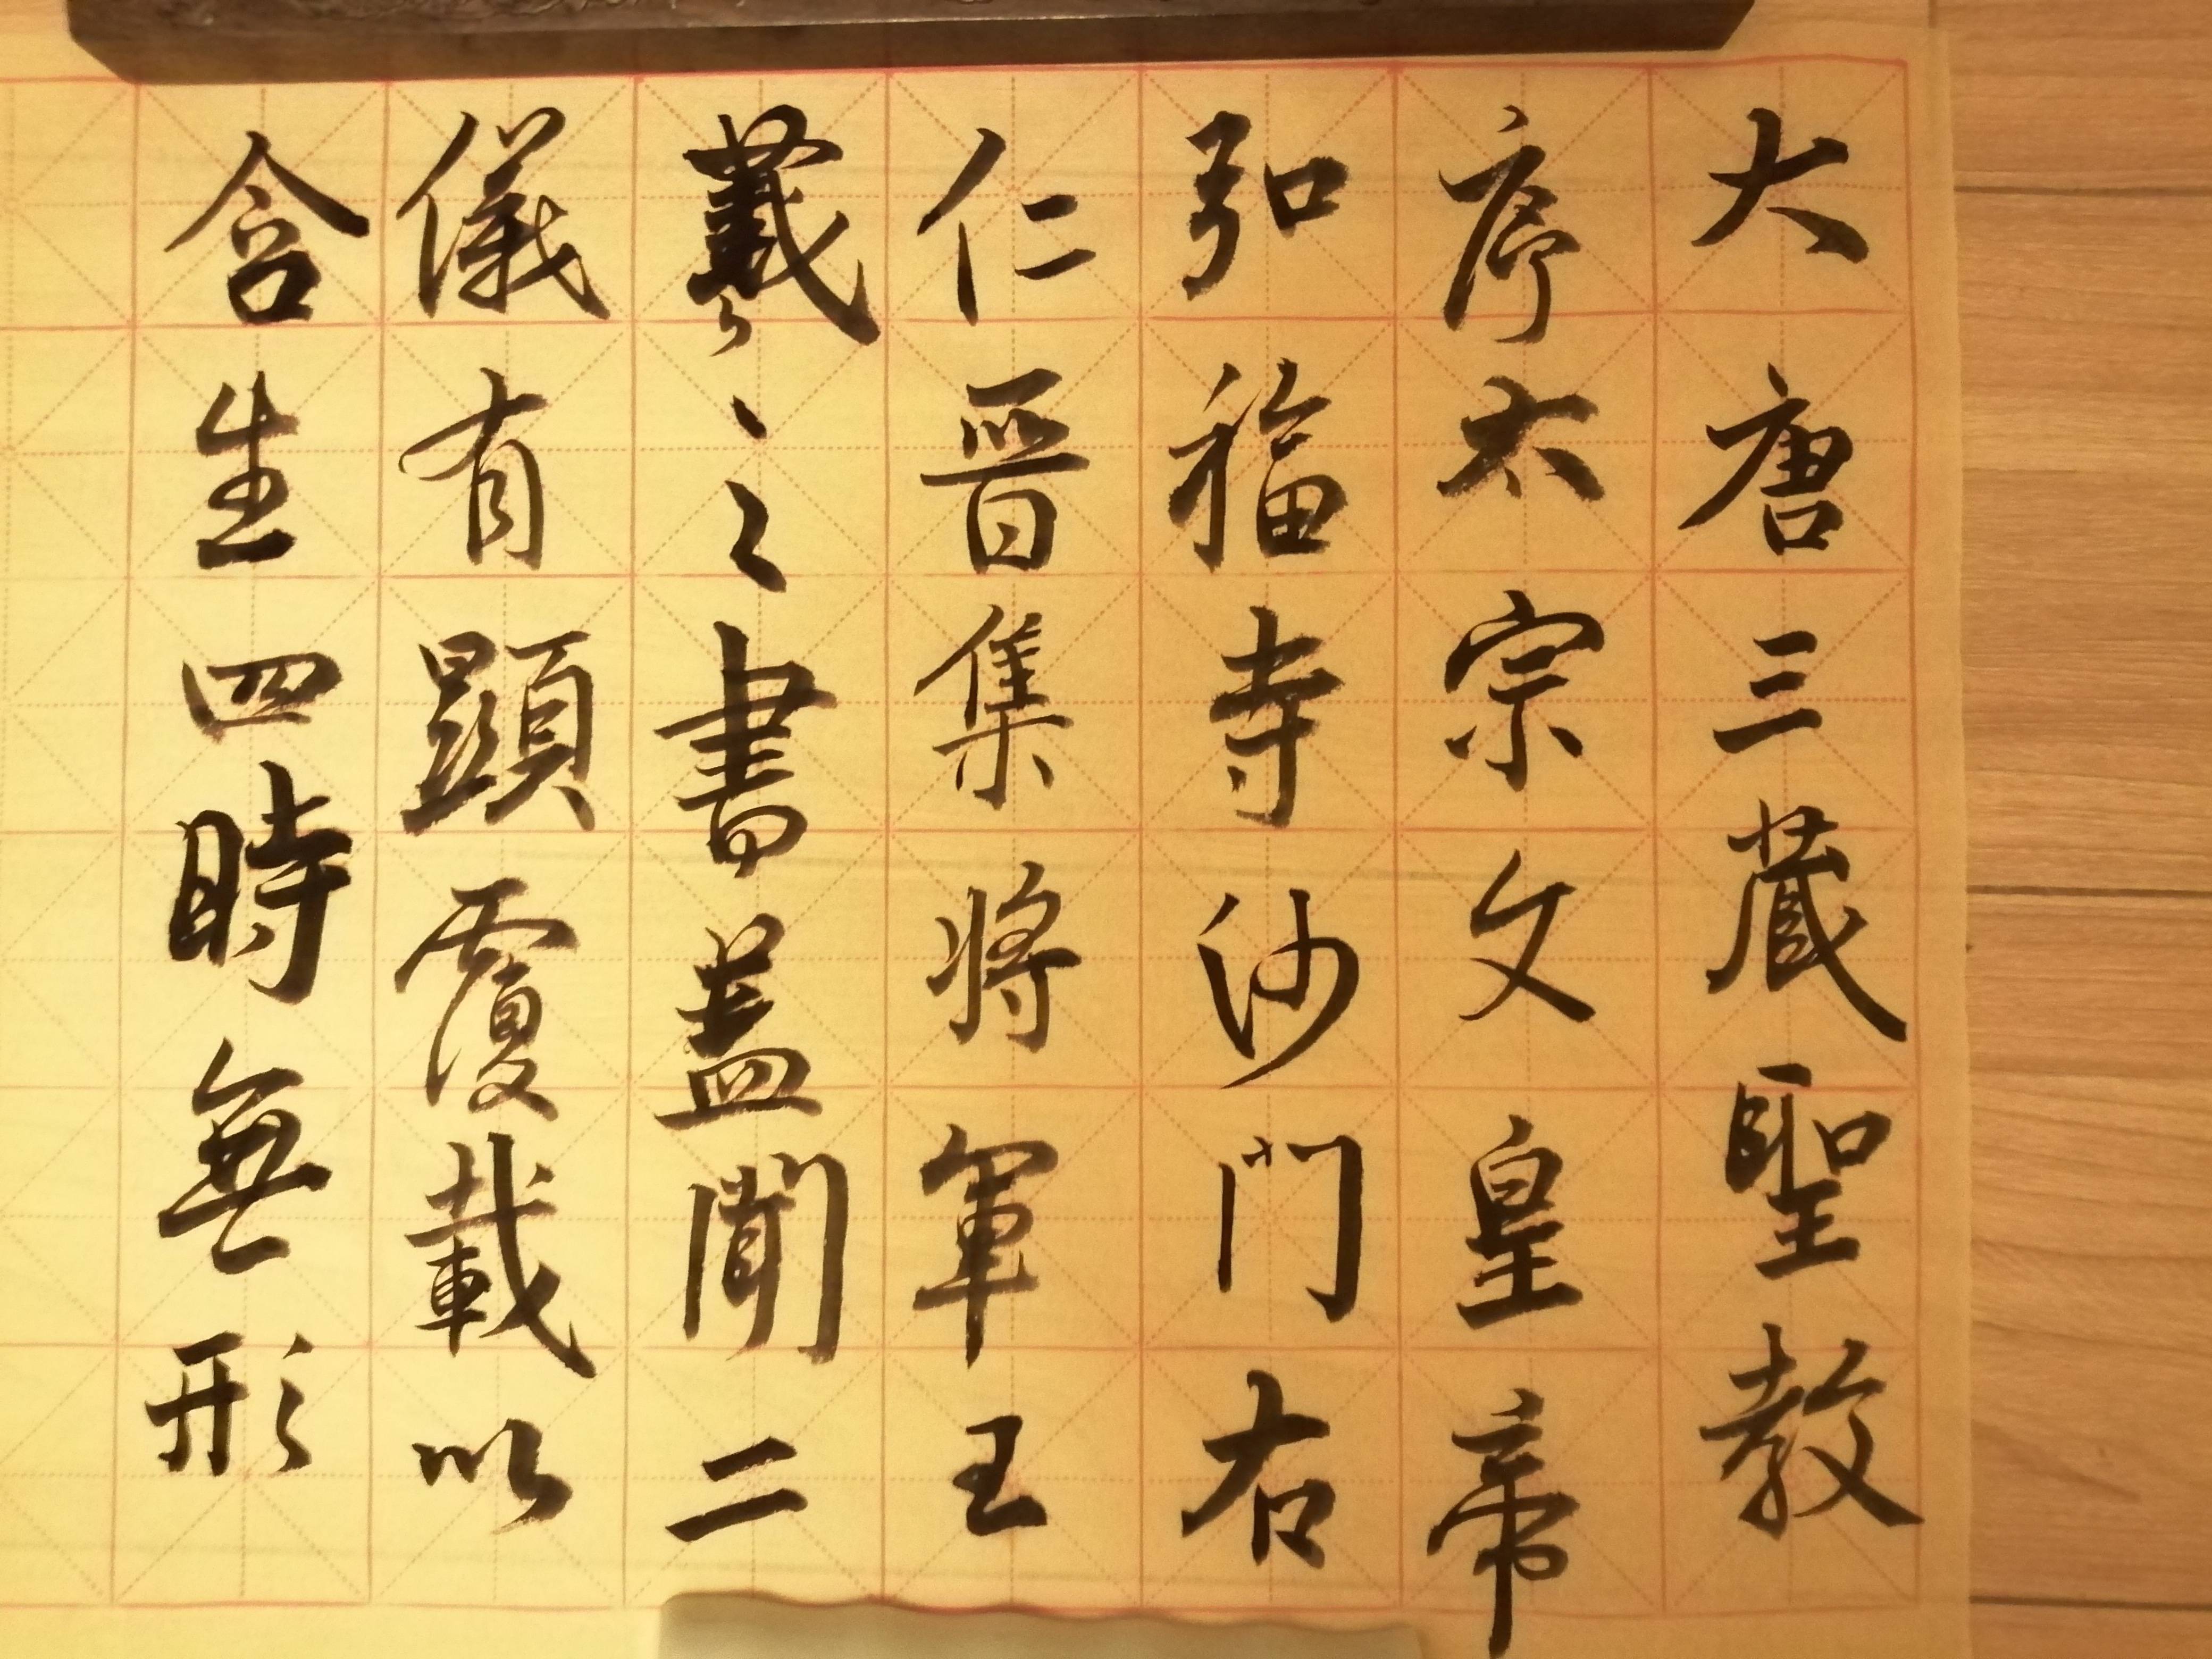 大唐三藏聖教
序太宗文皇帝
弘福寺沙門右
仁晉集將軍王
羲之書蓋聞二
儀有顯覆載以
含生四時無形